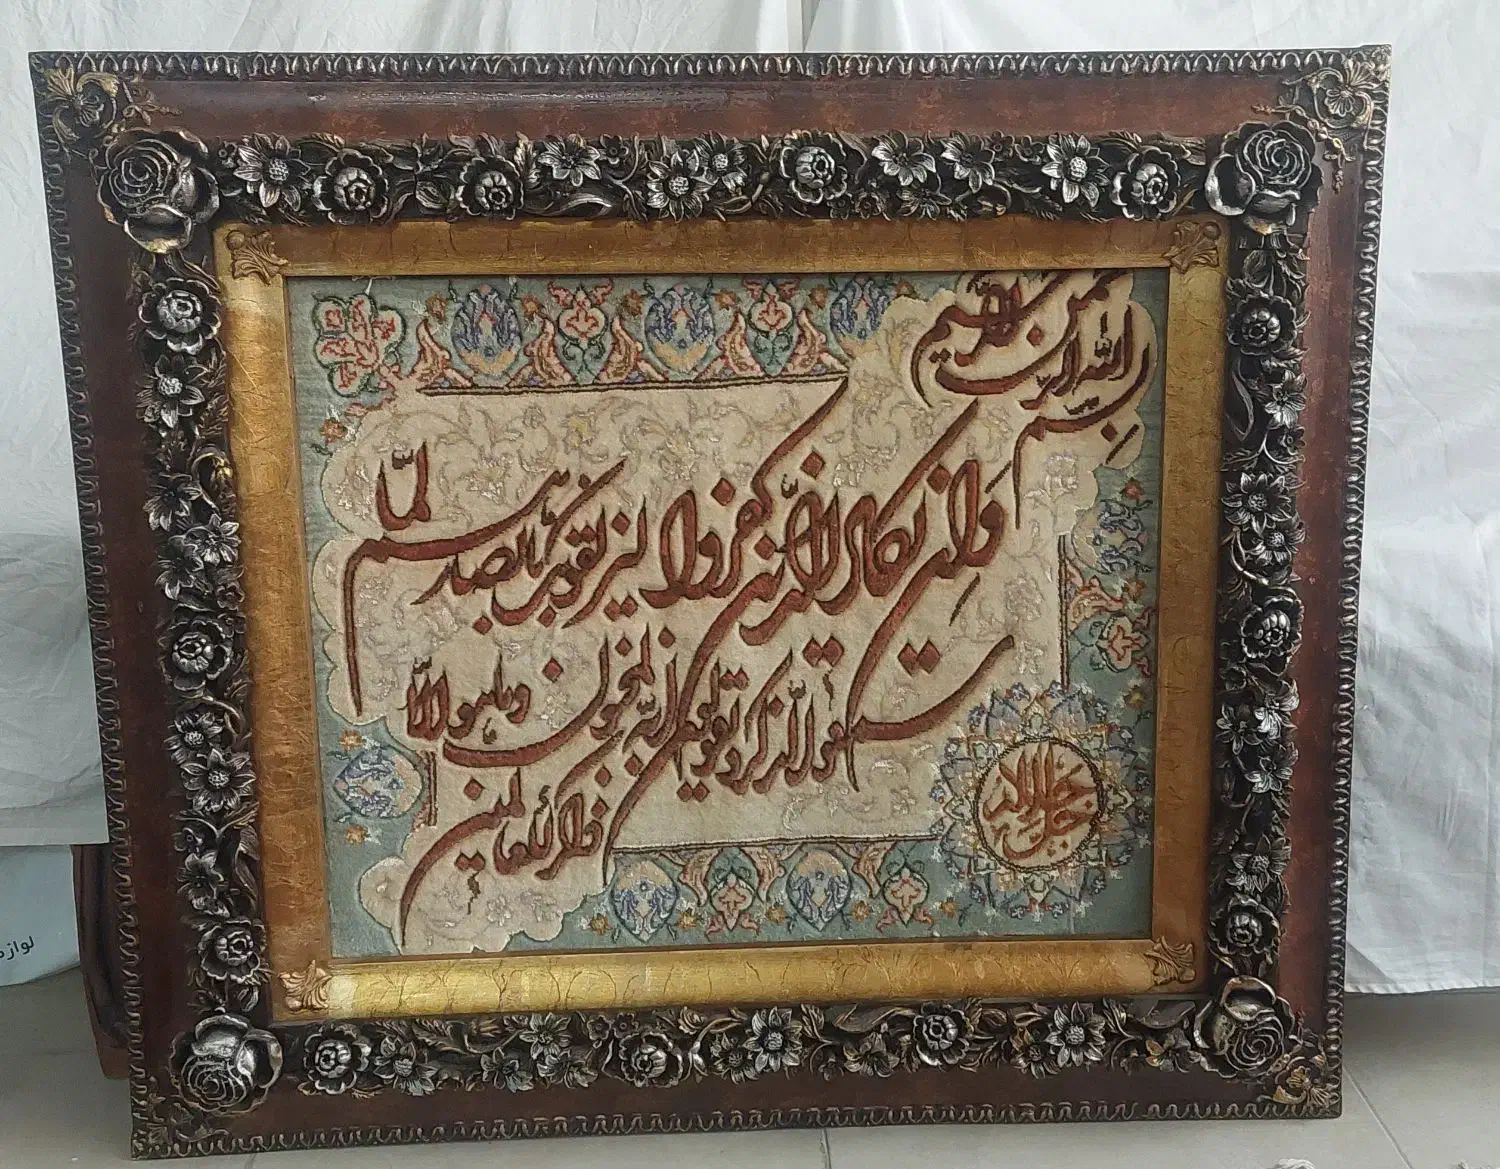 بسم الله الرحمن الرحیم
وَاِن یکاد الذین کفروا لیزلقونک بابصارهم لمّا
سمعوا الذکر و یقولون انه لمجنون و ما هو الّا
ذکر للعالمین
جل جلاله
لوازم